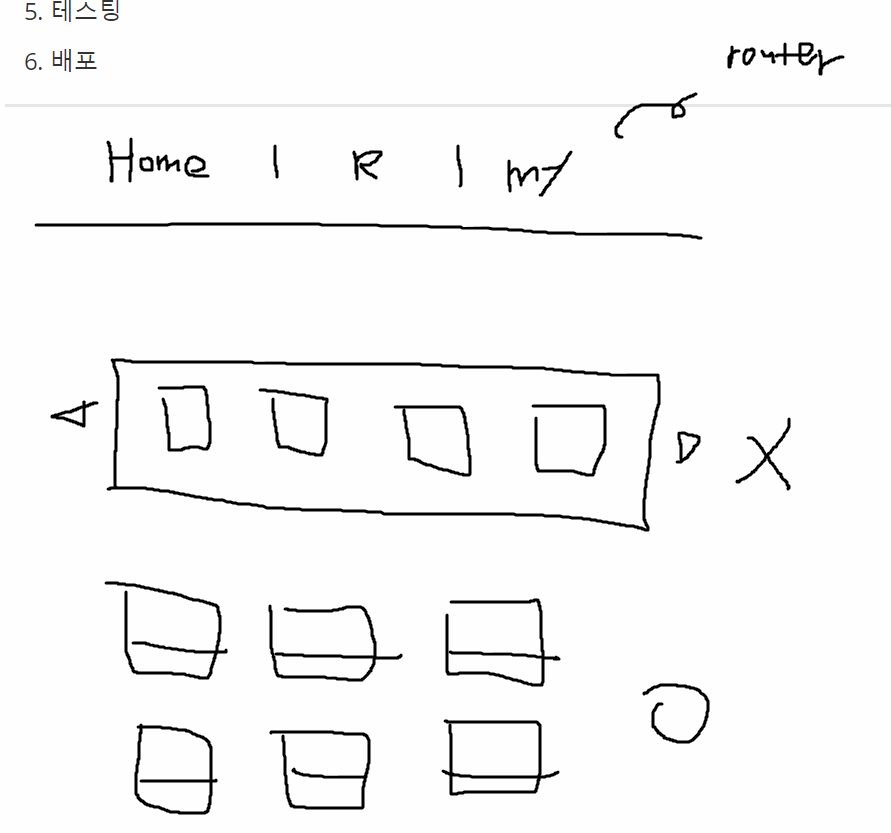 5. 테스팅
6. 배포
router
Home | R | my
X